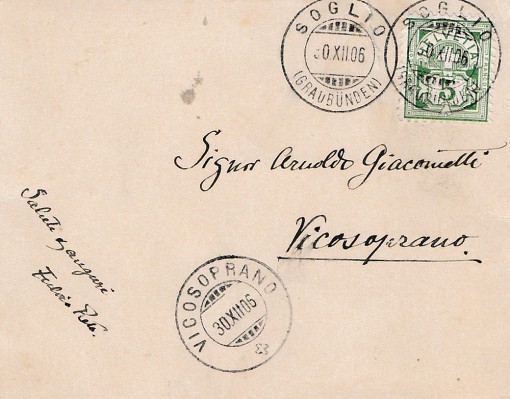 SOGLIO
30.XII.06
(GRAUBÜNDEN)
SOGLIO
30.XII.06
HELVETIA
5
Signor Arnoldo Giacometti
Vicosoprano.
Saluti & auguri
VICOSOPRANO
30.XII.06